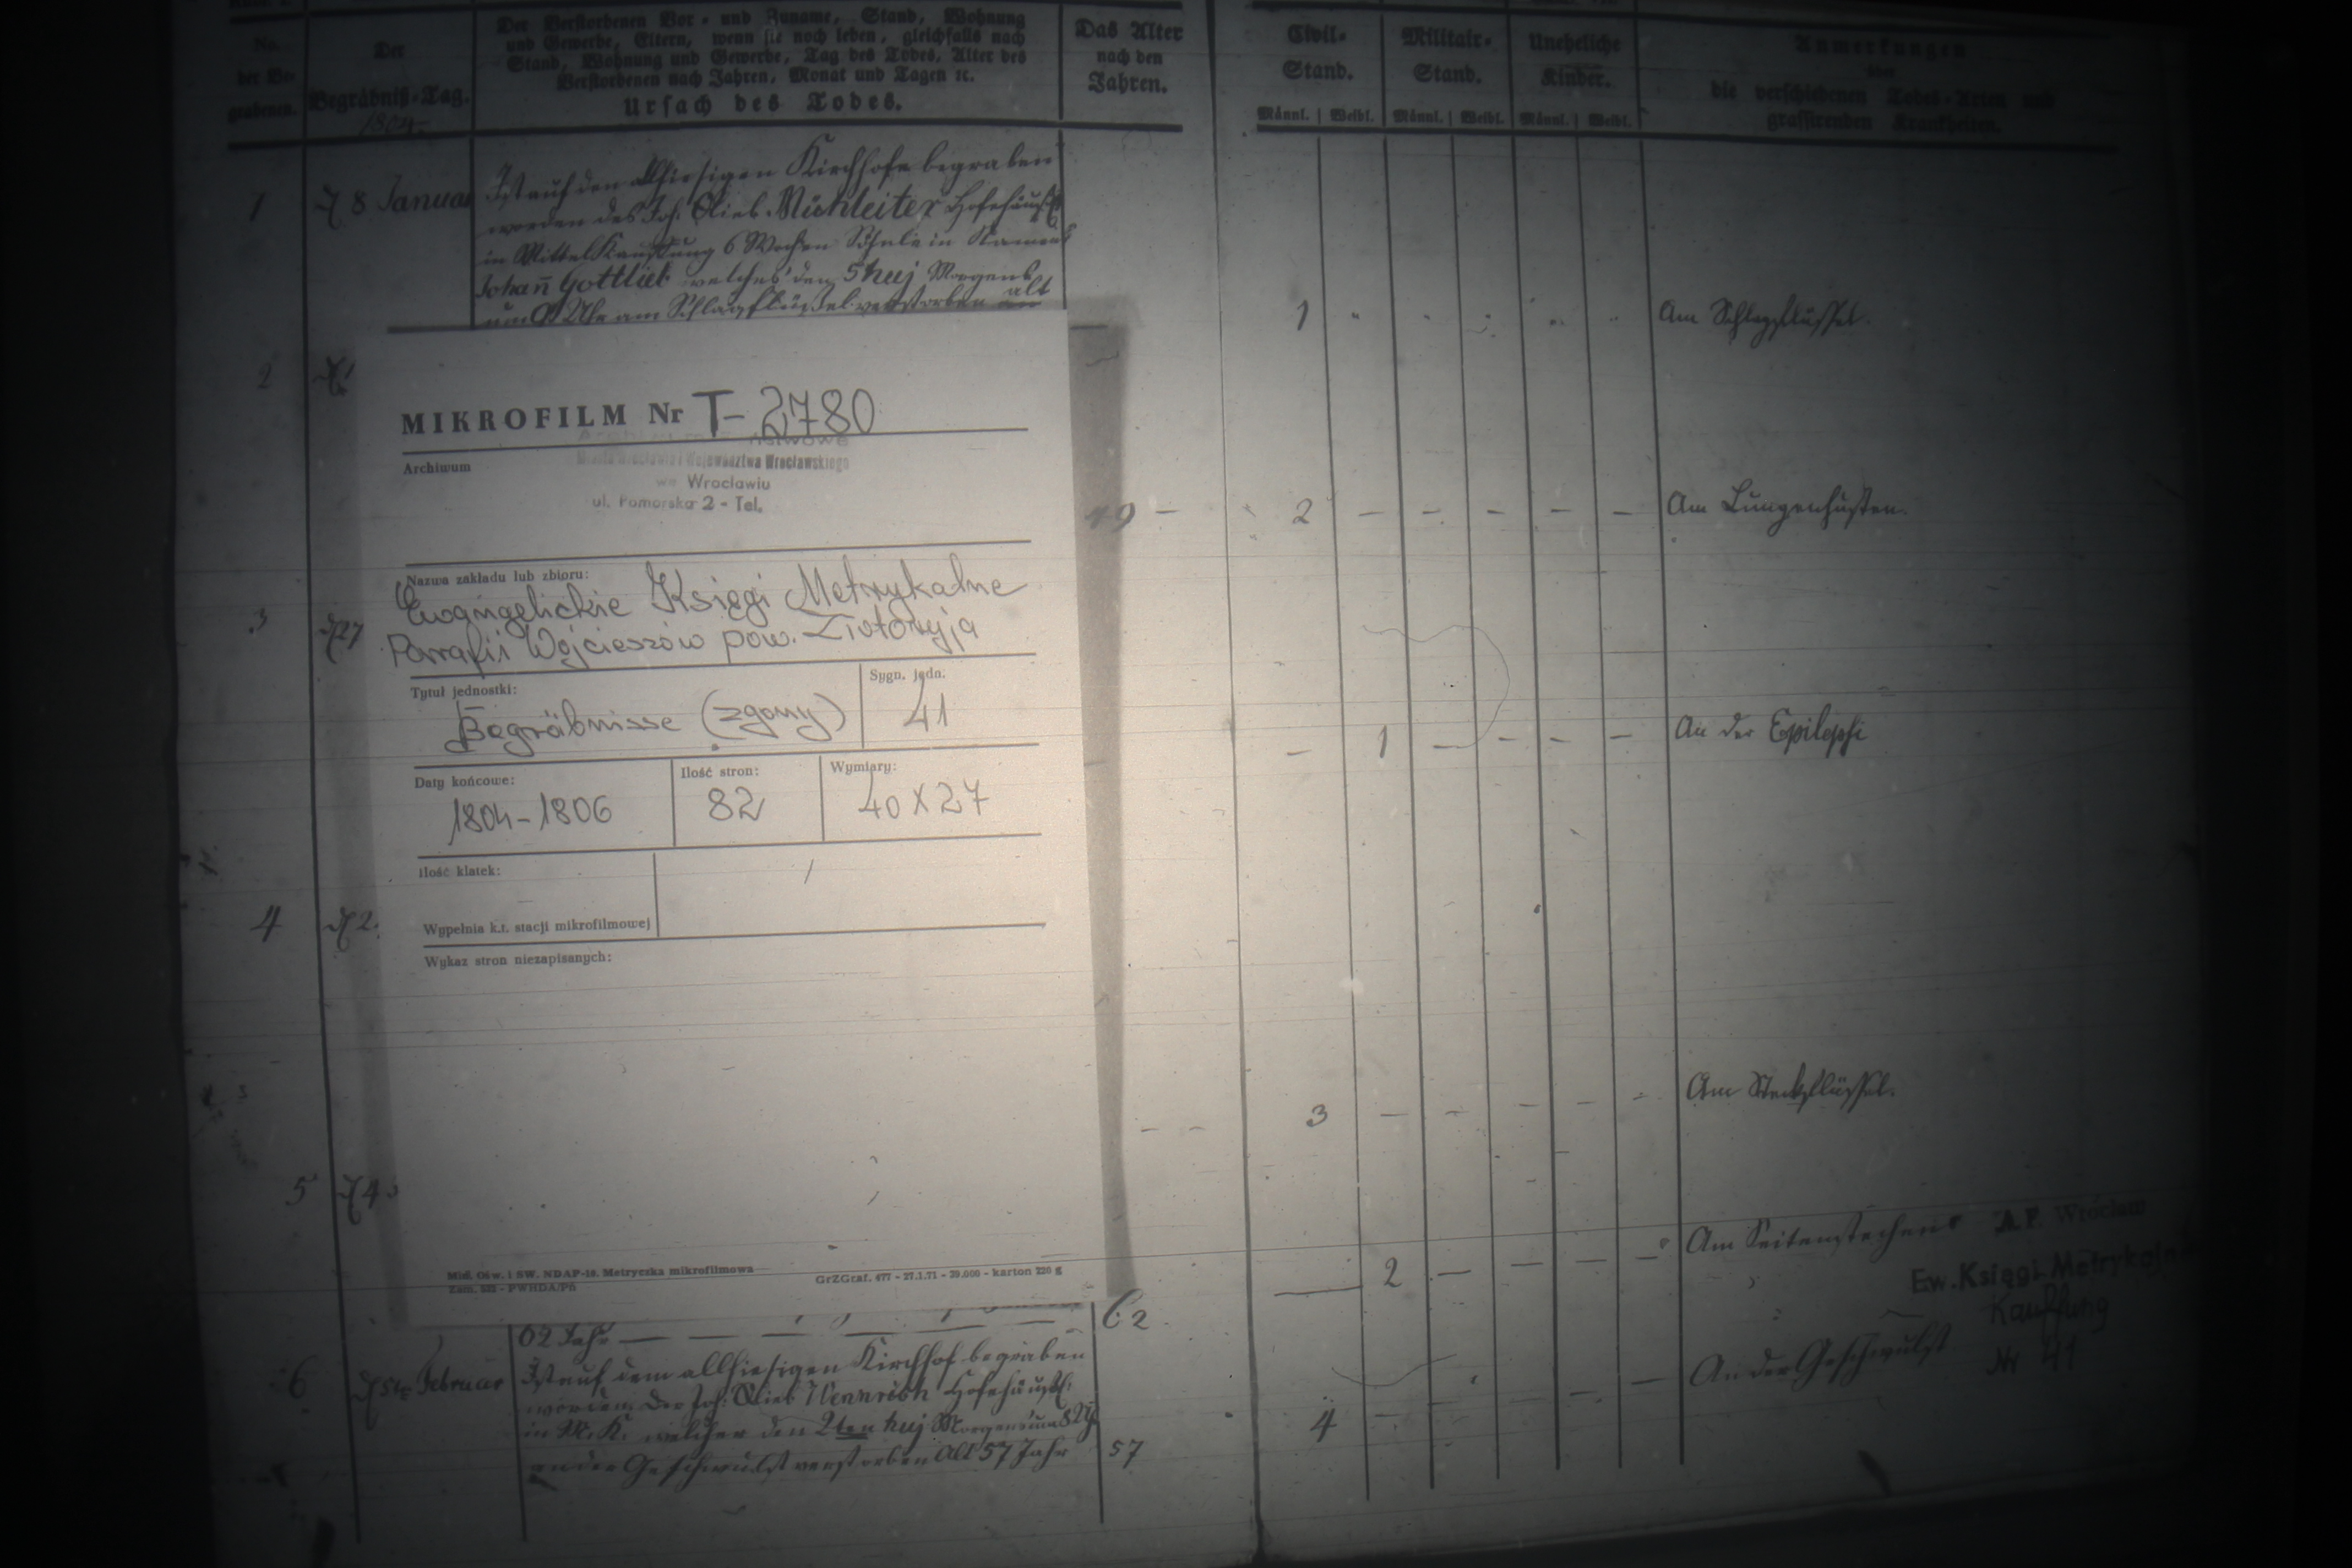 No.
der Be-
grabenen.
Der
Begräbniß-Tag.
1804.
Der Verstorbenen Vor- und Zuname, Stand, Wohnung
und Gewerbe, Eltern, wenn sie noch leben, gleichfalls nach
Stand, Wohnung und Gewerbe, Tag des Todes, Alter des
Verstorbenen nach Jahren, Monat und Tagen ꝛc.
Ursach des Todes.
Das Alter
nach den
Jahren.
Civil-
Stand.
Militair-
Stand.
Uneheliche
Kinder.
Männl. | Weibl. Männl. | Weibl. Männl. | Weibl.
Anmerkungen
über
die verschiedenen Todes-Arten und
grassirenden Krankheiten.
1 8 Januar
Ist auf den allhiesigen Kirchhofe begraben
worden des Joh. Glieb. Hofehäusl.
in Mittel Kauffung 6 Wochen Söhnlein Namens
Johañ Gottlieb welches den 5 huj Morgens
um 9 Uhr am Schlagflüßel verstorben alt
1 Am Schlagflüssel.
2
MIKROFILM Nr T-2780
Archiwum
Wojewodztwa Wrocławskiego
we Wrocławiu
ul. Pomorska 2 - Tel.
49 - 2 - - - - - Am Lungenhusten.
Nazwa zakładu lub zbioru:
Ewangelickie Księgi Metrykalne
Parafii Wojcieszów pow. Złotoryja
3 27
Tytuł jednostki:
Begräbnisse (zgony)
Sygn. jedn.
41
- 1 - - - - An der Epilepsi
Daty końcowe:
1804-1806
Ilość stron:
82
Wymiary:
40 X 27
Ilość klatek:
Wypełnia k.t. stacji mikrofilmowej
4 2.
Wykaz stron niezapisanych:
- - 3 - - - - - Am Steckflüssel.
5 4
2 - - - - Am Seitenstechen
A.P. Wrocław
Ew. Księgi Metrykalne
Kauffung
Nr 41
Mid. Ośw. i SW. NDAP-16. Metryczka mikrofilmowa
GrZGraf. 677 - 27.1.71 - 20.000 - karton 220 g
62 Jahr — — — — — 62
6 5te Februar
Ist auf dem allhiesigen Kirchhof begraben
worden Der Joh: Glieb Hofehäusl.
in M. K. welcher den 2ten huj Morgens um 8 Uhr
an der Geschwulst verstorben Alt 57 Jahr
57
4 - - - An der Geschwulst